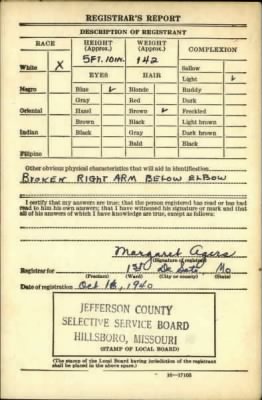 REGISTRAR'S REPORT
DESCRIPTION OF REGISTRANT
RACE HEIGHT (Approx.) WEIGHT (Approx.) COMPLEXION
5 FT. 10 in. 142
White X Sallow
EYES HAIR Light ✓
Negro Blue ✓ Blonde Ruddy
Gray Red Dark
Oriental Hazel Brown ✓ Freckled
Brown Black Light brown
Indian Black Gray Dark brown
Bald Black
Filipino
Other obvious physical characteristics that will aid in identification
BROKEN RIGHT ARM BELOW ELBOW
I certify that my answers are true; that the person registered has read or has had
read to him his own answers; that I have witnessed his signature or mark and that
all of his answers of which I have knowledge are true, except as follows:
Margaret Agers
(Signature of registrar)
Registrar for 1st De Soto, Mo
(Precinct) (Ward) (City or county) (State)
Date of registration Oct 16, 1940
JEFFERSON COUNTY
SELECTIVE SERVICE BOARD
HILLSBORO, MISSOURI
(STAMP OF LOCAL BOARD)
(The stamp of the Local Board having jurisdiction of the registrant
shall be placed in the above space.)
16—17105